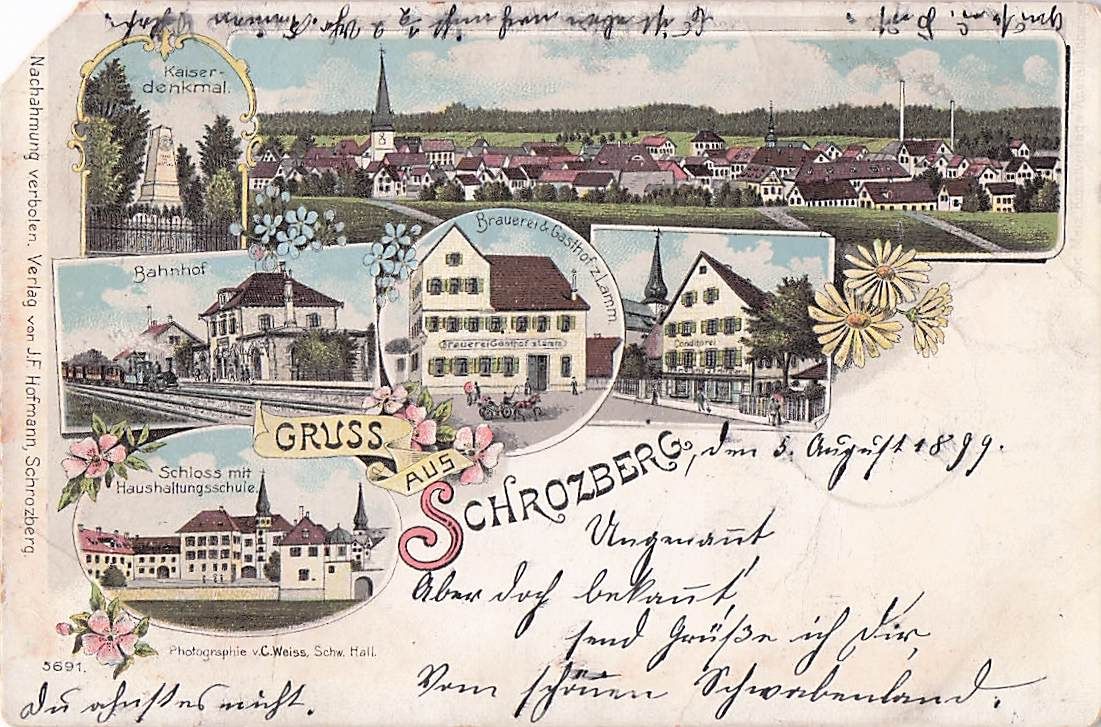 Kaiser-
denkmal.
Bahnhof
Brauerei & Gasthof z. Lamm
Brauerei Gasthof z. Lamm
Conditorei
GRUSS
AUS
SCHROZBERG, den 5. August 1899.
Schloss mit
Haushaltungsschule.
Ungenannt
Aber doch bekannt,
send Grüße ich Dir,
Vom schönen Schwabenland.
Du ahnst es nicht.
Photographie v. C. Weiss, Schw. Hall.
5691.
Nachahmung verboten. Verlag von J.F. Hofmann, Schrozberg.